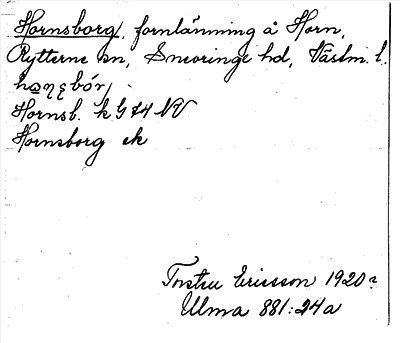 Hornsborg, fornlämning å Horn,
Rytterne sn, Snevringe hd, Västm. l.
Hornsb. k G 84 NV
Hornsborg ek
Torsten Ericsson 1920?
Ulma 881:24a